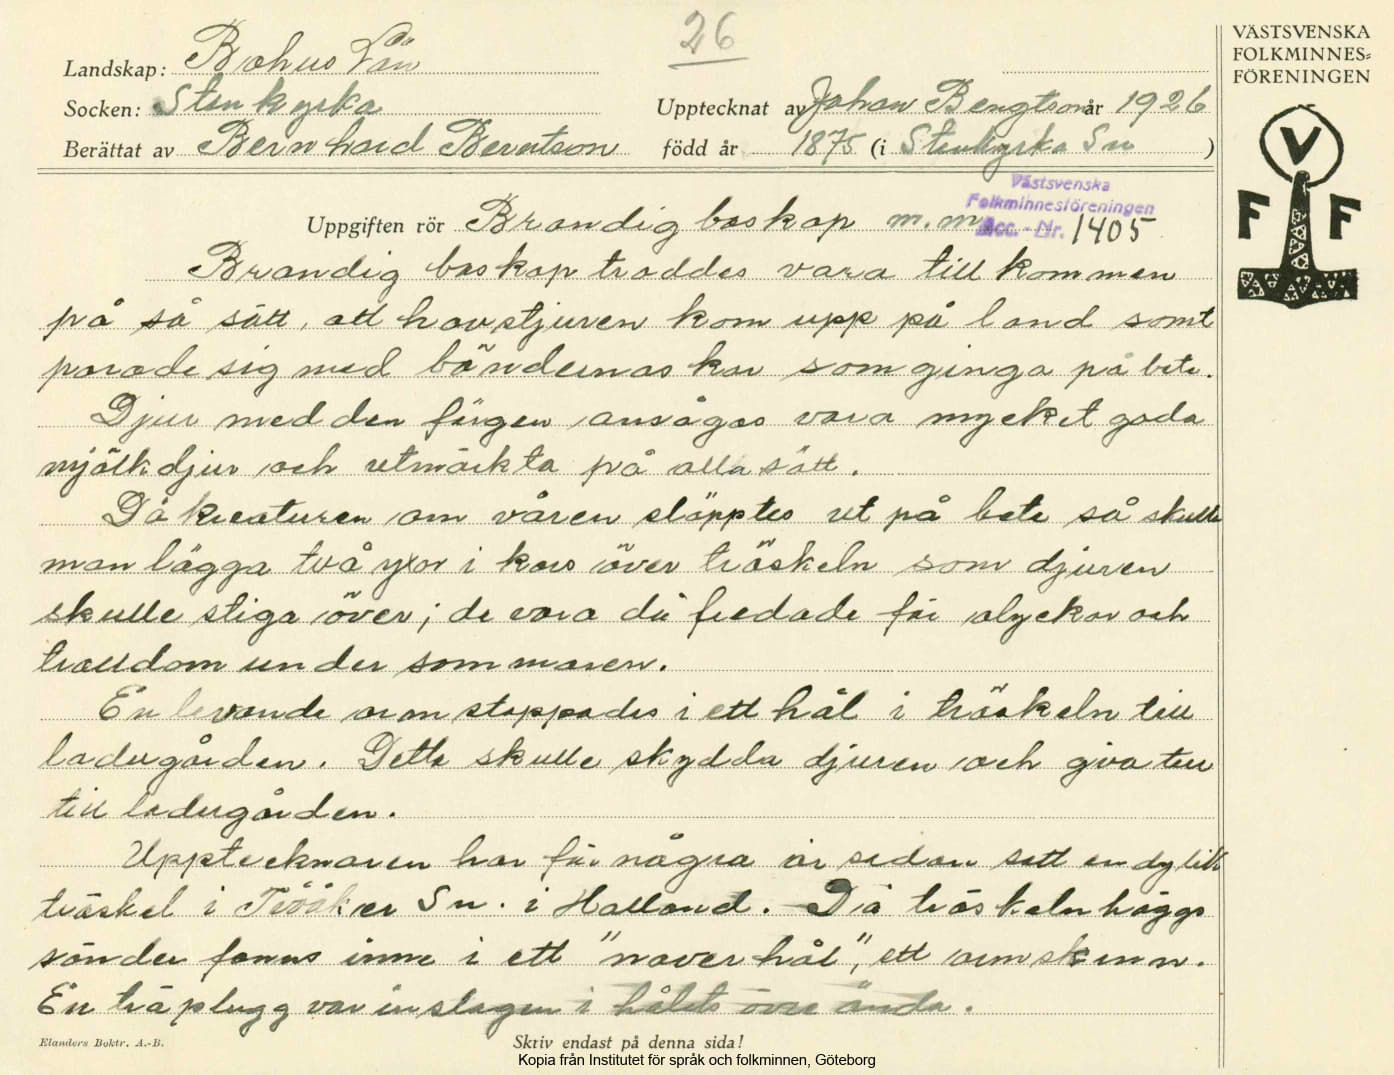 26
Landskap: Bohus Län
Socken: Stenkyrka
Upptecknat av Johan Bengtson år 1926
Berättat av Bernhard Berntson född år 1875 (i Stenkyrka Sn )
VÄSTSVENSKA
FOLKMINNES=
FÖRENINGEN
V
F F
Västsvenska
Folkminnesföreningen
Acc. - Nr. 1405
Uppgiften rör Brandig boskap m.m
Brandig boskap troddes vara till kommen
på så sätt, att havstjuren kom upp på land samt
parade sig med böndernas kor som ginga på bete.
Djur med den färgen ansågos vara mycket goda
mjölkdjur och utmärkta på alla sätt.
Då kreaturen om våren släpptes ut på bete så skulle
man lägga två yxor i kors över tröskeln som djuren
skulle stiga över; de voro då fredade för olyckor och
trolldom under sommaren.
En levande orm stoppades i ett hål i tröskeln till
ladugården. Detta skulle skydda djuren och giva tur
till ladugården.
Upptecknaren har för några år sedan sett en dylik
tröskel i Sn. i Halland. Då tröskeln höggs
sönder fanns inne i ett "naver hål", ett ormskinn.
En träplugg var inslagen i hålets övre ända.
Elanders Boktr. A.-B.
Skriv endast på denna sida!
Kopia från Institutet för språk och folkminnen, Göteborg